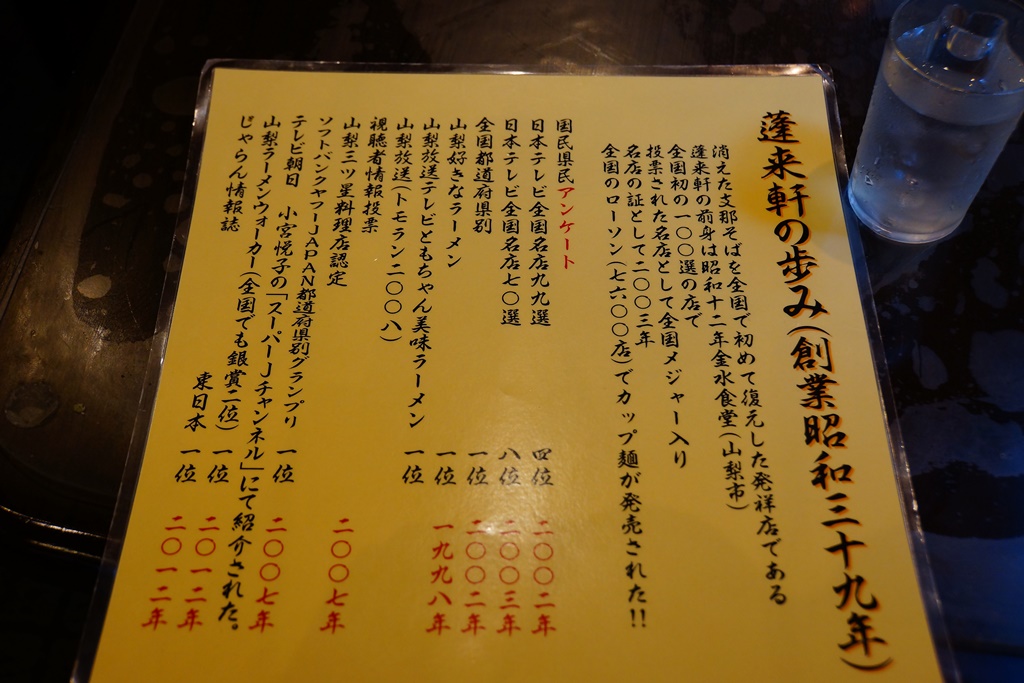 蓬来軒の歩み(創業昭和三十九年)
消えた支那そばを全国で初めて復元した発祥店である
蓬来軒の前身は昭和十二年金水食堂(山梨市)
全国初の一〇〇選の店で
投票された名店として全国メジャー入り
名店の証として二〇〇三年
全国のローソン(七六〇〇店)でカップ麺が発売された!!
国民県民アンケート
日本テレビ全国名店九九選 四位 二〇〇二年
日本テレビ全国名店七〇選 八位 二〇〇三年
全国都道府県別 一位 二〇〇二年
山梨好きなラーメン 一位 一九九八年
山梨放送テレビともちゃん美味ラーメン
山梨放送(トモラン二〇〇八) 一位
視聴者情報投票
山梨三ツ星料理店認定 二〇〇七年
ソフトバンクヤフーJAPAN都道府県別グランプリ 一位 二〇〇七年
テレビ朝日 小宮悦子の「スーパーJチャンネル」にて紹介された。
山梨ラーメンウォーカー(全国でも銀賞二位) 一位 二〇一二年
じゃらん情報誌 東日本 一位 二〇一二年